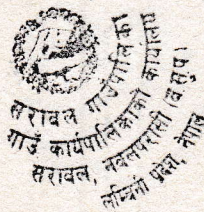 सरावल गाउँपालिका
गाउँ कार्यपालिकाको कार्यालय
सरावल, नवलपरासी (ब.सु.प.)
लुम्बिनी प्रदेश, नेपाल